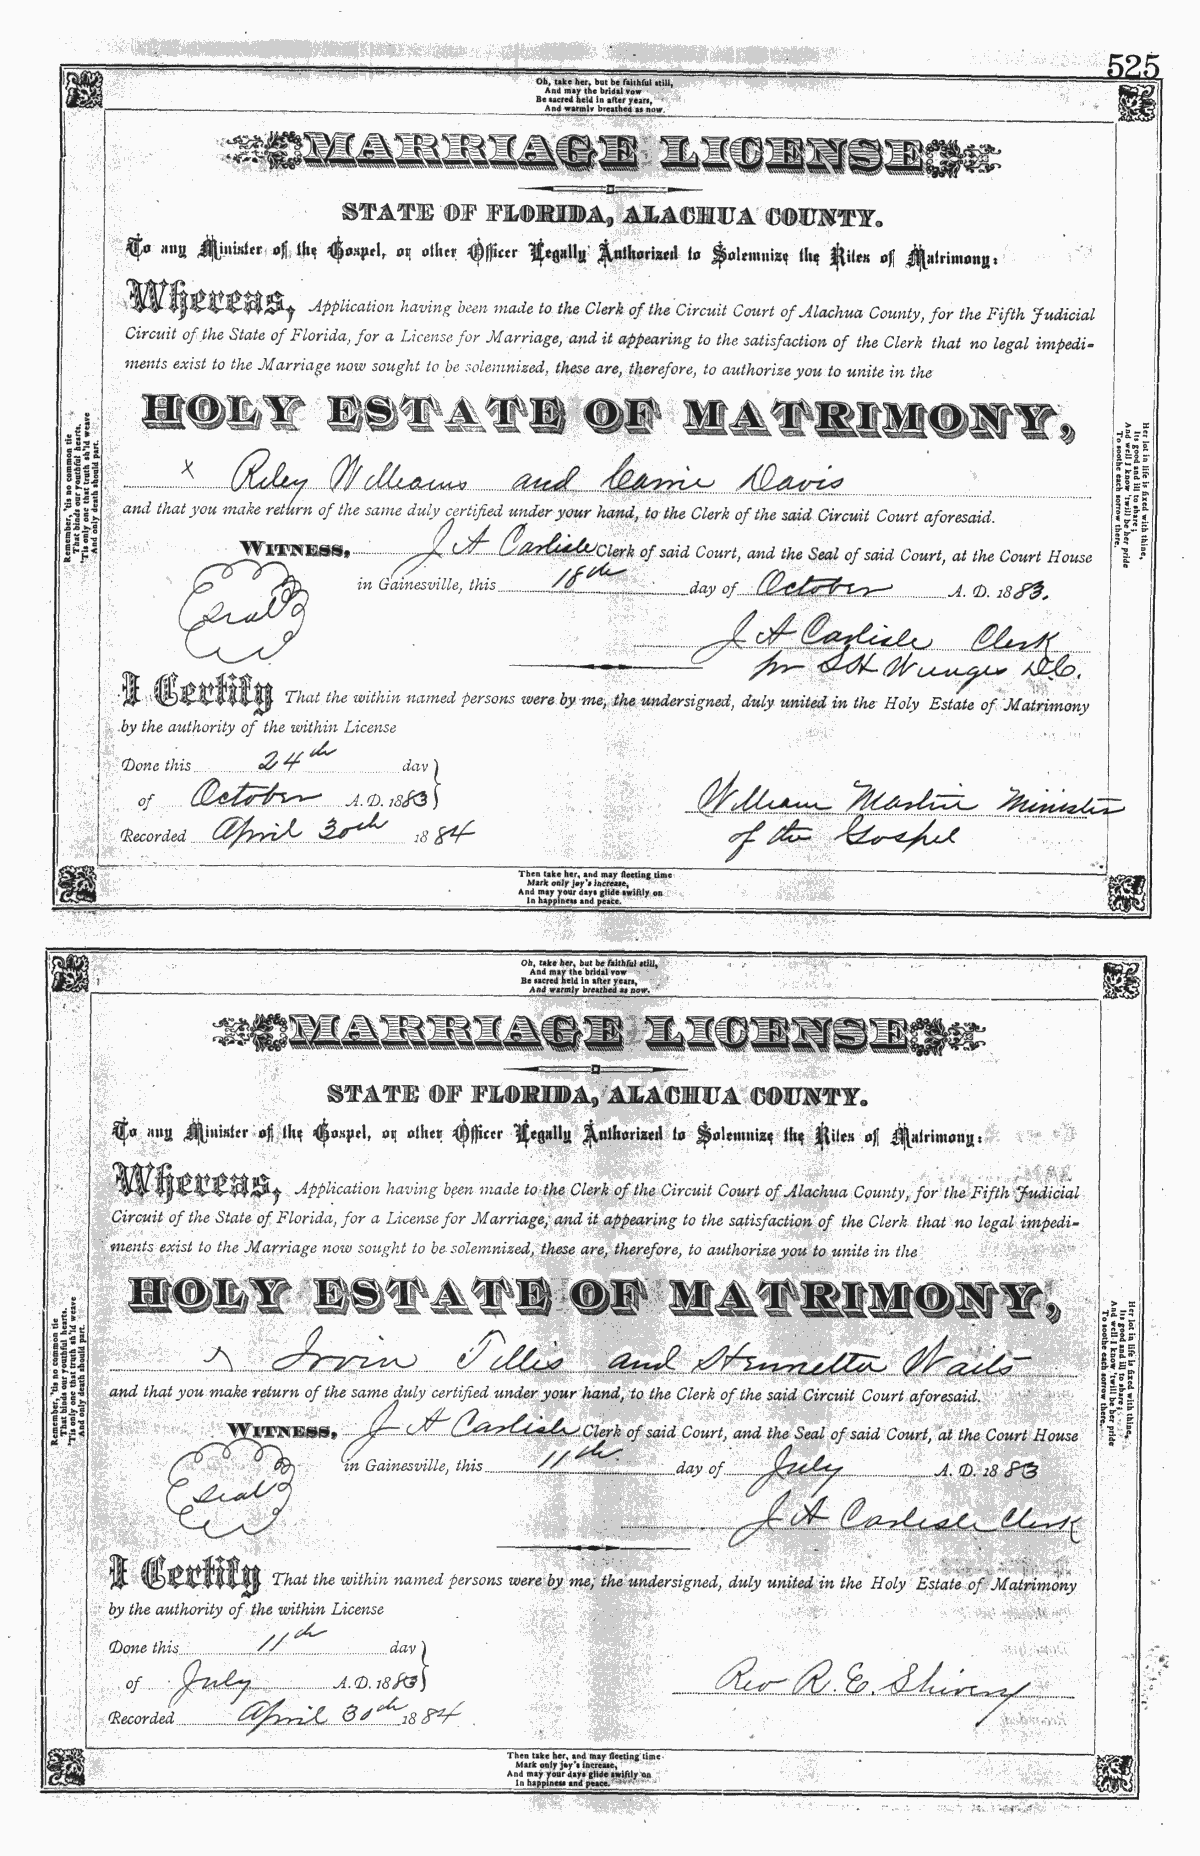 525
Oh, take her, but be faithful still,
And may the bridal vow
Be sacred held in after years,
And warmly breathed as now.
MARRIAGE LICENSE
STATE OF FLORIDA, ALACHUA COUNTY.
To any Minister of the Gospel, or other Officer Legally Authorized to Solemnize the Rites of Matrimony:
Whereas, Application having been made to the Clerk of the Circuit Court of Alachua County, for the Fifth Judicial
Circuit of the State of Florida, for a License for Marriage, and it appearing to the satisfaction of the Clerk that no legal impedi-
ments exist to the Marriage now sought to be solemnized, these are, therefore, to authorize you to unite in the
HOLY ESTATE OF MATRIMONY,
x Riley Williams and Carrie Davis
and that you make return of the same duly certified under your hand, to the Clerk of the said Circuit Court aforesaid.
WITNESS, J A Carlisle Clerk of said Court, and the Seal of said Court, at the Court House
in Gainesville, this 18th day of October A. D. 1883.
Seal
J A Carlisle Clerk
pr S H D.C.
I Certify That the within named persons were by me, the undersigned, duly united in the Holy Estate of Matrimony
by the authority of the within License
Done this 24th day
of October A. D. 1883
William Martin Minister
of the Gospel
Recorded April 30th 1884
Remember, 'tis no common tie
That binds our youthful hearts,
'Tis only one that truth sh'ld weave
And only death should part.
Her lot in life is fixed with thine,
Its good and ill to share;
And well I know 'twill be her pride
To soothe each sorrow there.
Then take her, and may fleeting time
Mark only joy's increase,
And may your days glide swiftly on
In happiness and peace.
Oh, take her, but be faithful still,
And may the bridal vow
Be sacred held in after years,
And warmly breathed as now.
MARRIAGE LICENSE
STATE OF FLORIDA, ALACHUA COUNTY.
To any Minister of the Gospel, or other Officer Legally Authorized to Solemnize the Rites of Matrimony:
Whereas, Application having been made to the Clerk of the Circuit Court of Alachua County, for the Fifth Judicial
Circuit of the State of Florida, for a License for Marriage, and it appearing to the satisfaction of the Clerk that no legal impedi-
ments exist to the Marriage now sought to be solemnized, these are, therefore, to authorize you to unite in the
HOLY ESTATE OF MATRIMONY,
x Irvin Tillis and Hennetta Waits
and that you make return of the same duly certified under your hand, to the Clerk of the said Circuit Court aforesaid.
WITNESS, J A Carlisle Clerk of said Court, and the Seal of said Court, at the Court House
in Gainesville, this 11th day of July A. D. 1883
Seal
J A Carlisle Clerk
I Certify That the within named persons were by me, the undersigned, duly united in the Holy Estate of Matrimony
by the authority of the within License
Done this 11th day
of July A. D. 1883
Rev R. E. Shivery
Recorded April 30th 1884
Remember, 'tis no common tie
That binds our youthful hearts,
'Tis only one that truth sh'ld weave
And only death should part.
Her lot in life is fixed with thine,
Its good and ill to share;
And well I know 'twill be her pride
To soothe each sorrow there.
Then take her, and may fleeting time
Mark only joy's increase,
And may your days glide swiftly on
In happiness and peace.